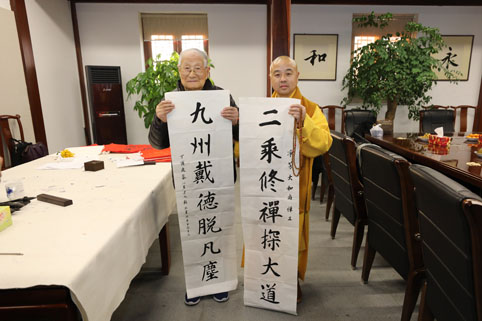 二乘修禪探大道
九州戴德脱凡塵
和
永